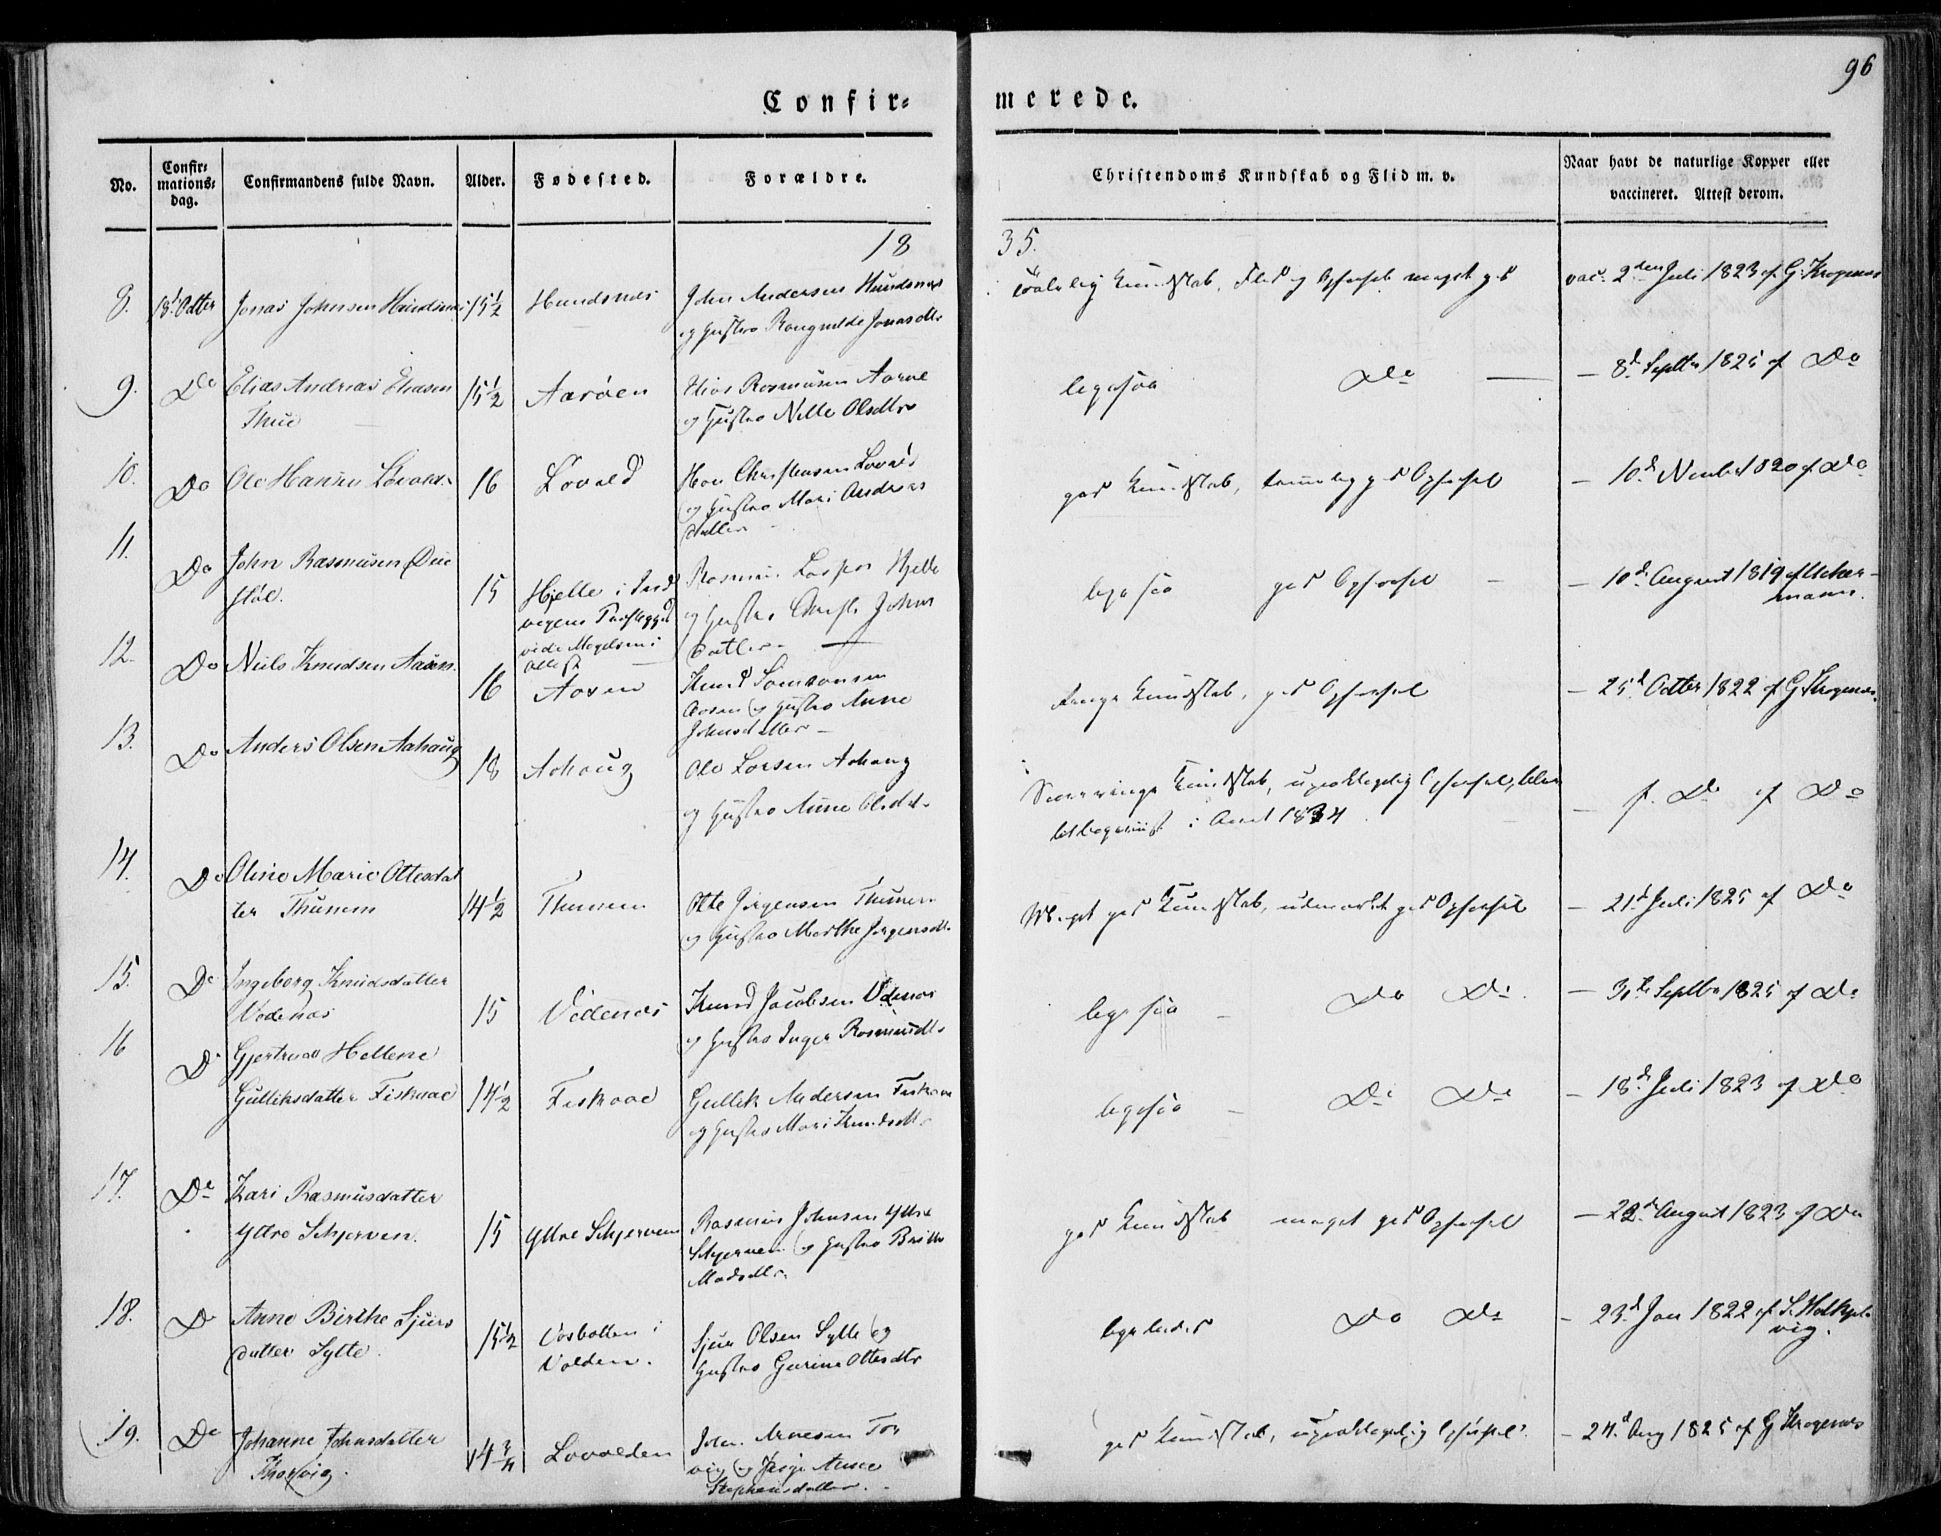 96
Confir=
merede.
No.
Confir=
mations=
dag.
Confirmandens fulde Navn.
Alder.
Fødested.
Forældre.
Christendoms Kundskab og Flid m. v.
Naar havt de naturlige Kopper eller
vaccineret. Attest derom.
18
35.
8.
18. Octbr
Jonas Johnsen Hundsnes
15½
Hundsnes
John Andersen Hundsnes
og Hustro Rangnilde Jonasdtr
Kundskab, Flid og Opførsel meget god
vac. 2den Juli 1823 af G. Krogenæs
9.
Do
Elias Andreas Eliasen
Thue
15½
Aarøen
Elias Rasmusen Aaröe
og Hustro Nille Olsdtr
ligesaa
Do
— 8d Septbr 1825 af Do
10.
Do
Ole Hansen Lövold
16
Lovold
Hans Christensen Lovold
og Hustro Mari Andreas
datter
god Kundskab, temmelig god Opførsel
— 10d Novbr 1820 af Do
11.
Do
John Rasmusen
støl.
15
Hjelle i Ind
vigens Præstegjeld
vide
attest
Rasmus Hjelle
og Hustro John
datter
ligesaa god Opførsel
— 10d August 1819 af
mann.
12.
Do
Niels Knudsen Aasen
16
Aasen
Knud Samsonsen
Aasen og Hustro Anne
Johnsdatter
Kundskab, god Opførsel
— 25d Octbr 1822 af G Krogenæs
13.
Do
Anders Olsen Aahaug
18
Aahaug
Ole Larsen Aahaug
og Hustro Anne Olsdtr
Kundskab, upaaklagelig Opførsel, blev
i Aaret 1834
— Do af Do
14.
Do
Oline Marie Ottesdat
ter Thunem
14½
Thunem
Otte Jörgensen Thunem
og Hustro Marthe Jörgensdtr
Meget god Kundskab, udmærket god Opførsel
— 21d Juli 1825 af Do
15.
Do
Ingeborg Knudsdatter
Vedenæs
15
Vedenæs
Knud Jacobsen Vedenæs
og Hustro Inger Rasmusdtr
ligesaa
Do Do
— Septbr 1825 af Do
16
Do
Gjertrud Hellene
Gulliksdatter Fiskaae
14½
Fiskaae
Gullik Andersen Fiskaae
og Hustro Mari Knudsdtr
ligesaa
Do Do
— 18d Juli 1823 af Do
17.
Do
Kari Rasmusdatter
Yttre Schjerven.
15
Yttre Schjerven
Rasmus Johnsen Yttre
Schjerven og Hustro Brithe
Madsdtr
god Kundskab meget god Opførsel
— 22d August 1823 af Do
18.
Do
Anne Birthe Sjurs
datter Sylte.
15½
Aasbotten i
Volden.
Sjur Olsen Sylte og
Hustro Gurine Ottesdtr
ligeledes
Do Do
— 23d Jan 1822 af S.
vig.
19.
Do
Johanne Johnsdatter
Thorvig.
14¾
Lovolden
John Arnesen Tor
vig og Pige Anne
Stephensdatter.
god Kundskab, upaaklagelig Opførsel
— 24d Aug 1825 af G Krogenæs